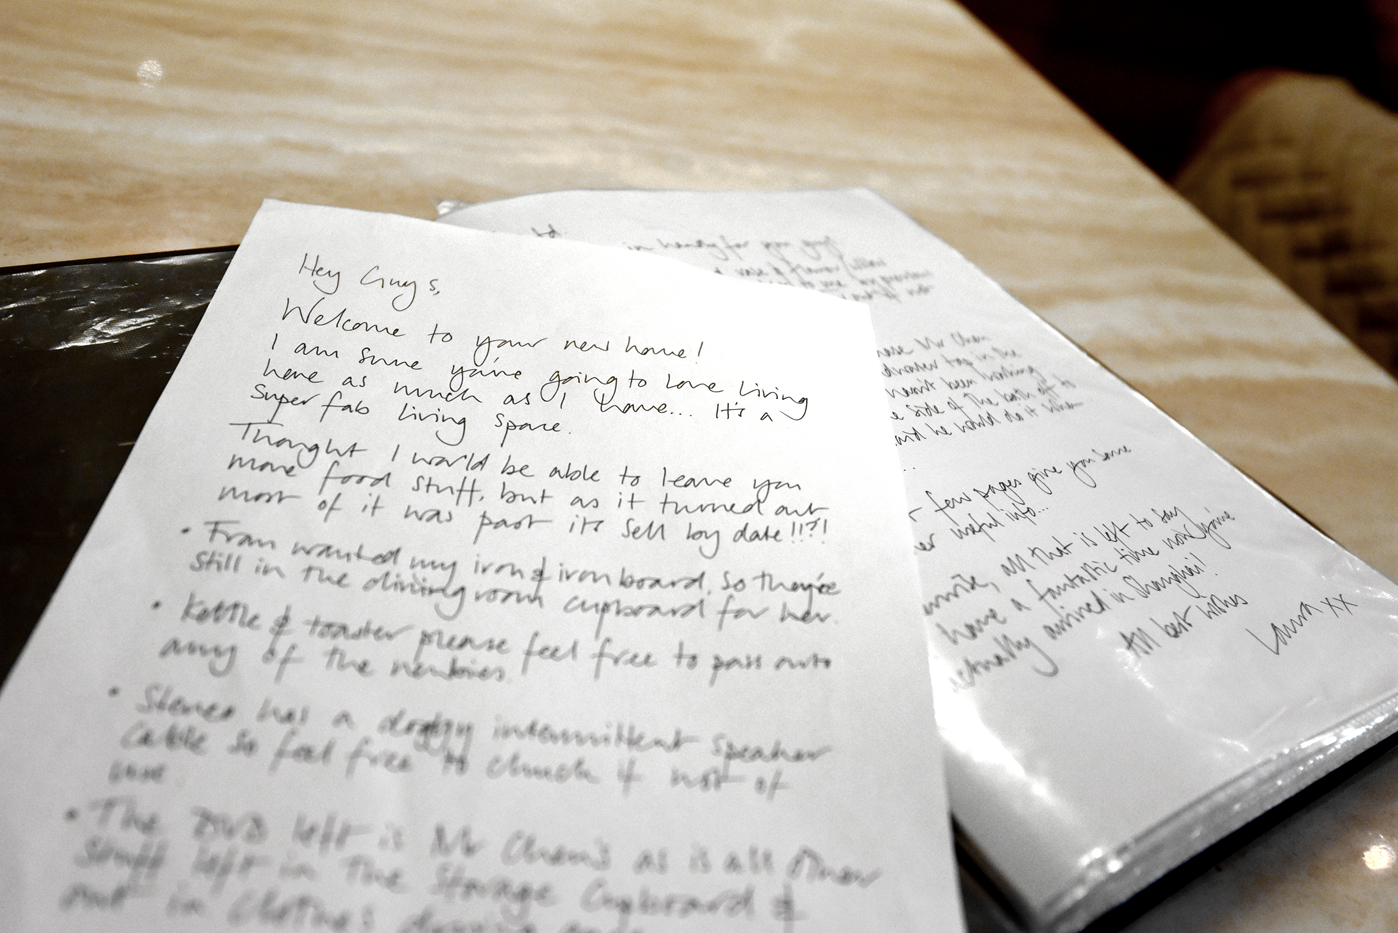 Hey Guys,
Welcome to your new home!
I am sure you're going to love living
here as much as I have... It's a
super fab living space.
Thought I would be able to leave you
more food stuff, but as it turned out
most of it was past its sell by date!!?!
• Fran wanted my iron & ironboard, so they're
still in the dining room cupboard for her.
• Kettle & toaster please feel free to pass onto
any of the newbies.
• Stereo has a dodgy intermittent speaker
cable so feel free to chuck if not of
use
• The DVD left is Mr Chen's as is all other
stuff left in the Storage Cupboard &
out in clothes
in handy for you guys
Mr Chen
tap in the
hasn't been working
side of the bath off to
and he would do it when
...
few pages give you some
useful info...
all that is left to say
have a fantastic time now you've
actually arrived in Shanghai!
All best wishes
Laura xx